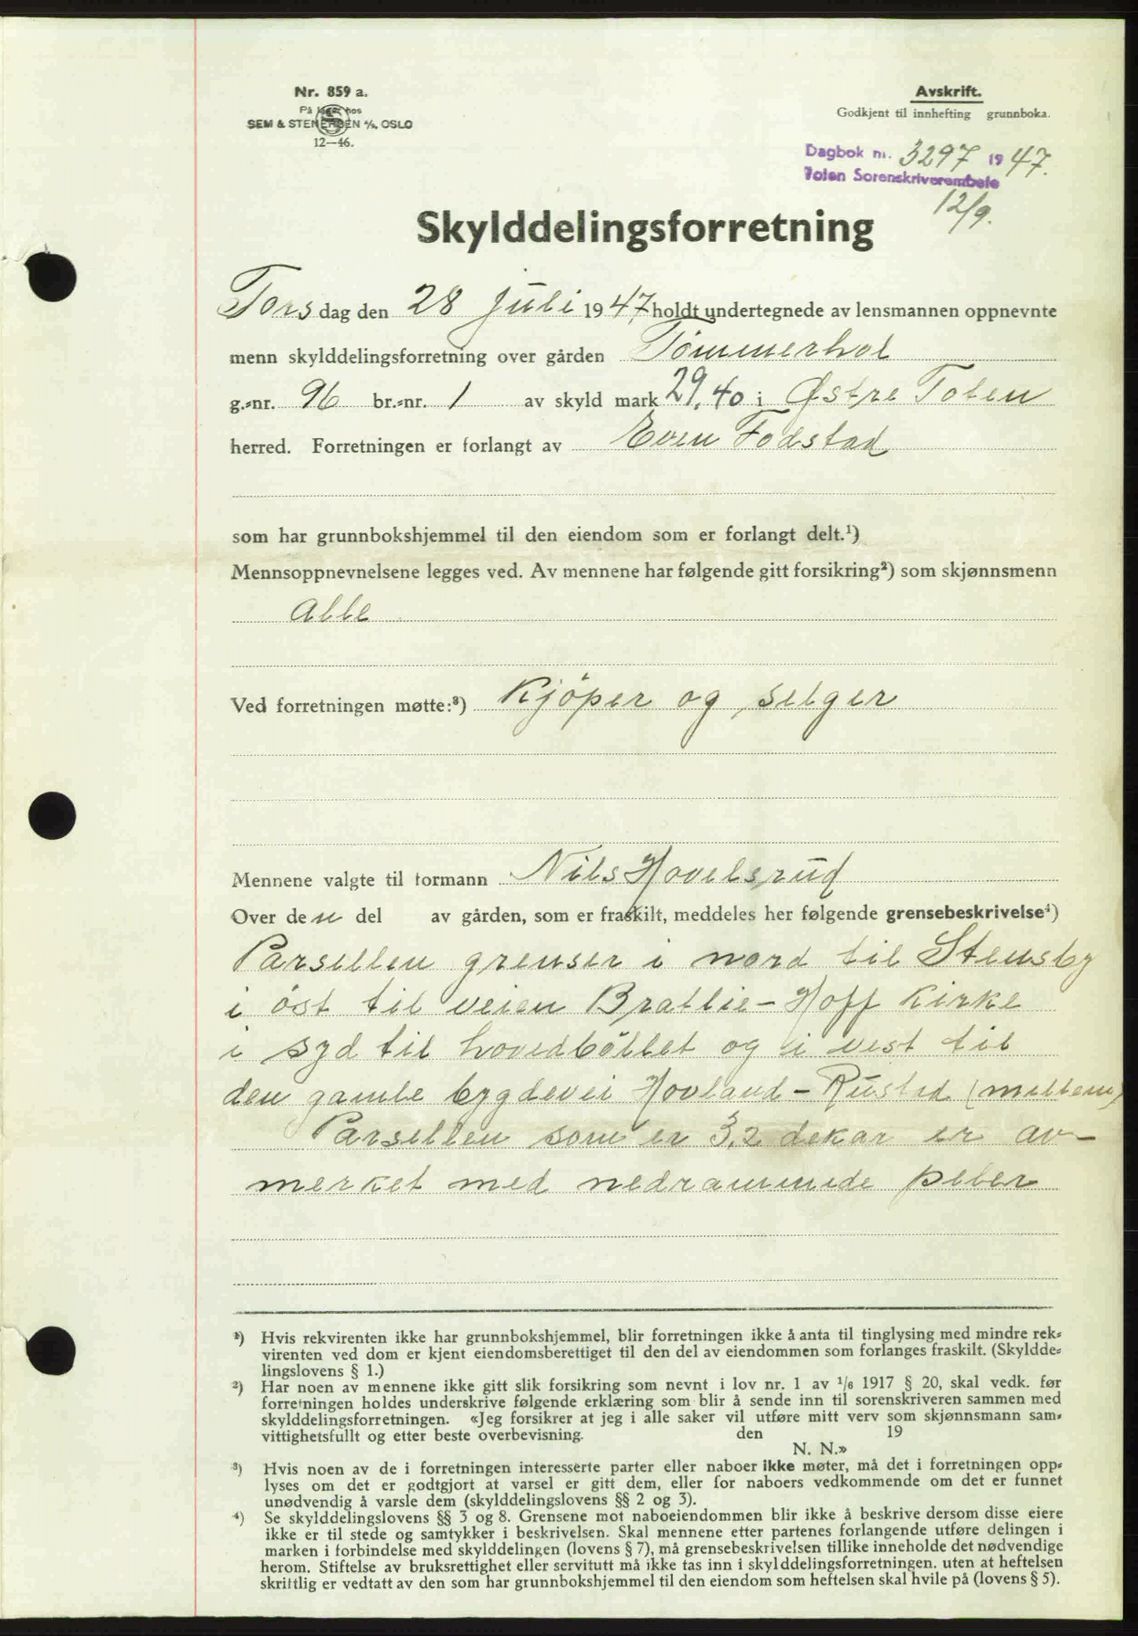 Nr. 859 a.
På lager hos
SEM & STENERSEN A/S, OSLO
12—46.
Avskrift.
Godkjent til innhefting grunnboka.
Dagbok nr. 3297 1947.
Toten Sorenskriverembete
12/9.
Skylddelingsforretning
Torsdag den 28 juli 1947 holdt undertegnede av lensmannen oppnevnte
menn skylddelingsforretning over gården Tømmerhol
g.-nr. 96 br.-nr. 1 av skyld mark 29,40 i Østre Toten
herred. Forretningen er forlangt av Even Fodstad
som har grunnbokshjemmel til den eiendom som er forlangt delt.¹)
Mennsoppnevnelsene legges ved. Av mennene har følgende gitt forsikring²) som skjønnsmenn
alle
Ved forretningen møtte:³) Kjöper og selger
Mennene valgte til formann Nils Hovelsrud
Over den del av gården, som er fraskilt, meddeles her følgende grensebeskrivelse⁴)
Parsellen grenser i nord til Stensby
i öst til veien Bratlie - Hoff Kirke
i syd til hovedböllet og i vest til
den gamle bygdevei Hovland - Rustad (mellem)
Parsellen som er 3,2 dekar er av-
merket med nedrammede peler
¹) Hvis rekvirenten ikke har grunnbokshjemmel, blir forretningen ikke å anta til tinglysing med mindre rek-
virenten ved dom er kjent eiendomsberettiget til den del av eiendommen som forlanges fraskilt. (Skyldde-
lingslovens § 1.)
²) Har noen av mennene ikke gitt slik forsikring som nevnt i lov nr. 1 av ¹/6 1917 § 20, skal vedk. før
forretningen holdes underskrive følgende erklæring som blir å sende inn til sorenskriveren sammen med
skylddelingsforretningen. «Jeg forsikrer at jeg i alle saker vil utføre mitt verv som skjønnsmann sam-
vittighetsfullt og etter beste overbevisning. den 19
N. N.»
³) Hvis noen av de i forretningen interesserte parter eller naboer ikke møter, må det i forretningen opp-
lyses om det er godtgjort at varsel er gitt dem, eller for naboers vedkommende om det er funnet
unødvendig å varsle dem (skylddelingslovens §§ 2 og 3).
⁴) Se skylddelingslovens §§ 3 og 8. Grensene mot naboeiendommen blir ikke å beskrive dersom disse eiere
ikke er til stede og samtykker i beskrivelsen. Skal mennene etter partenes forlangende utføre delingen i
marken i forbindelse med skylddelingen (lovens § 7), må grensebeskrivelsen tillike inneholde det nødvendige
herom. Stiftelse av bruksrettighet eller servitutt må ikke tas inn i skylddelingsforretningen. uten at heftelsen
skriftlig er vedtatt av den som har grunnbokshjemmel til den eiendom som heftelsen skal hvile på (lovens § 5).